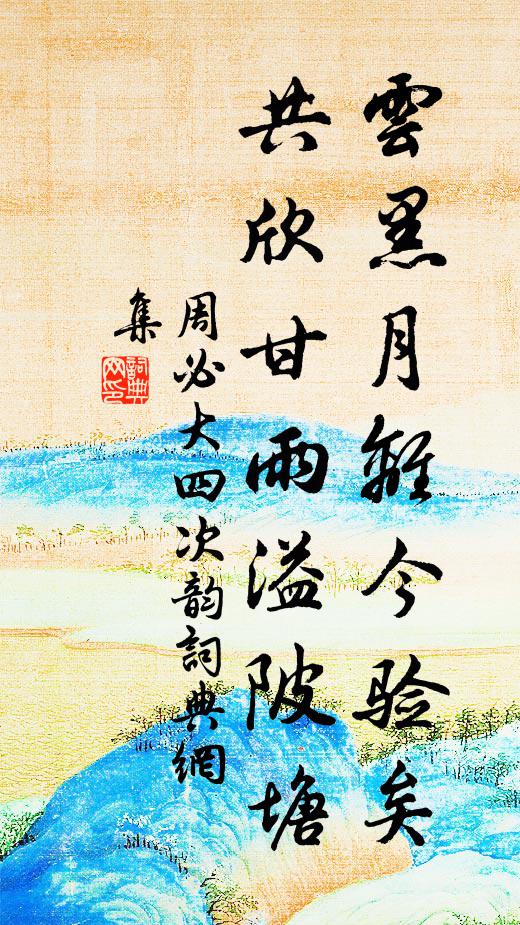 雲黑月離今验矣
共欣甘雨溢陂塘
周必大四次韵詞典網
集
詞典網印